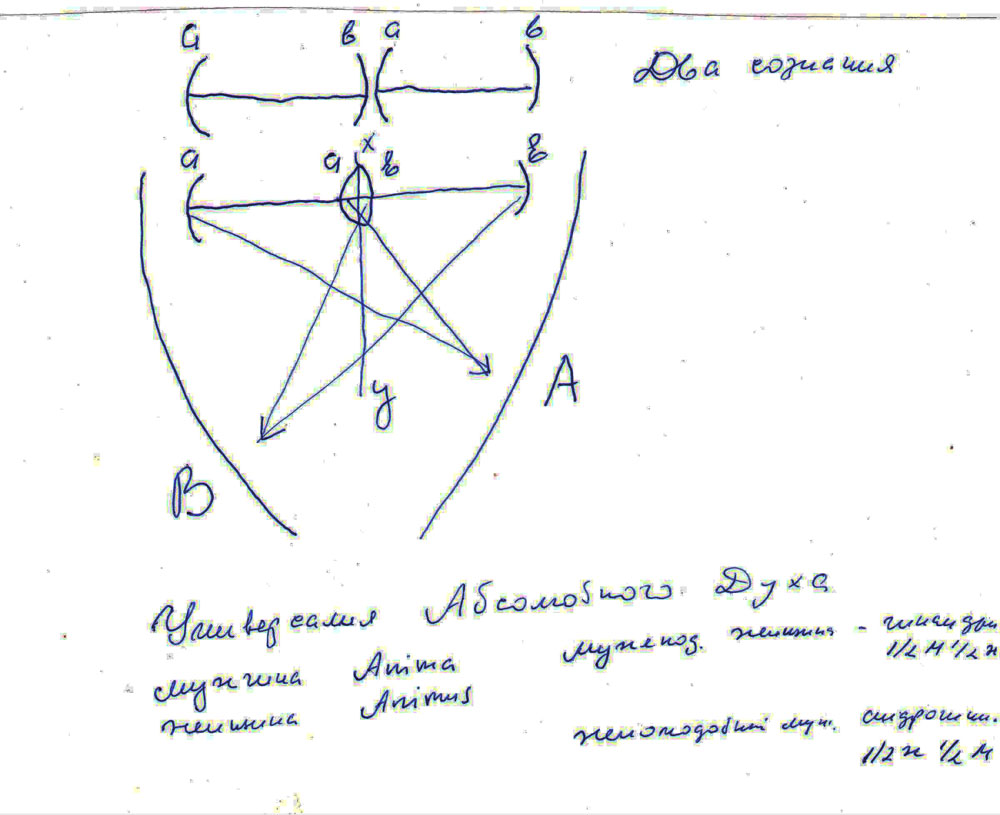 a в a в
Два сознания
a a x в в
y
A
B
Универсалия Абсолютного Духа
мужчина Anima
женщина Animus
мужепод. женщина - гинандрин
1/2 м 1/2 ж
женоподобный муж. андрогин.
1/2 ж 1/2 м